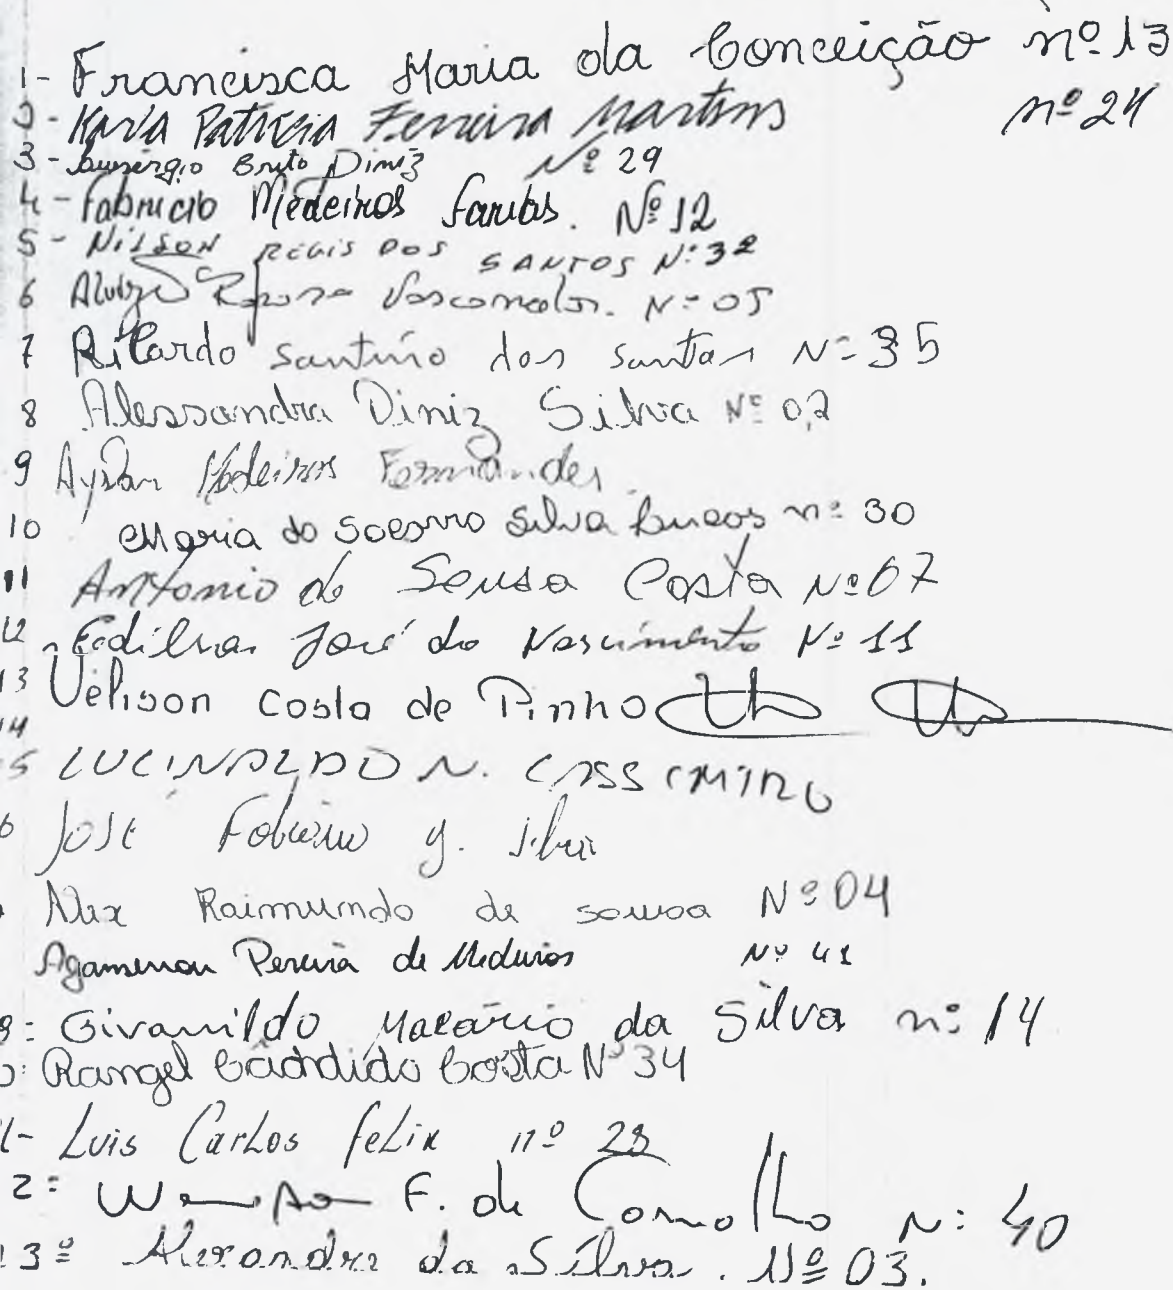 1- Francisca Maria da Conceição nº 13
2- Karla Patricia Ferreira Martins nº 24
3- Brito Diniz Nº 29
4- Fabricio Medeiros Farias. Nº 12
5- NILSON REGIS DOS SANTOS Nº 32
6 Vasconcelos. Nº 05
7 Ricardo Santino dos Santos Nº 35
8 Alessandra Diniz Silva Nº 02
9 Medeiros Fernandes
10 Maria do Socorro Silva nº 30
11 Antonio de Sousa Costa Nº 07
12 José do Nascimento Nº 11
13 Uelison Costa de Pinho
14
5 LUCINALDO N. CASSIMIRO
6 José Fabiano g. Silva
Alex Raimundo de sousa Nº 04
Agamenon Pereira de Medeiros Nº 41
Givanildo Macário da Silva nº 14
Rangel Cândido Costa Nº 34
Luis Carlos felix nº 28
2= F. de Carvalho Nº 40
3º Alexandre da Silva. Nº 03.